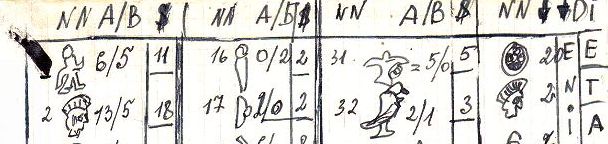 NN A/B $ NN A/B $ NN A/B $ NN Di
6/5 11 16 0/2 2 31 = 5/0 5 E E
2 13/5 18 17 2/0 2 32 2/1 3 2 N T
i A